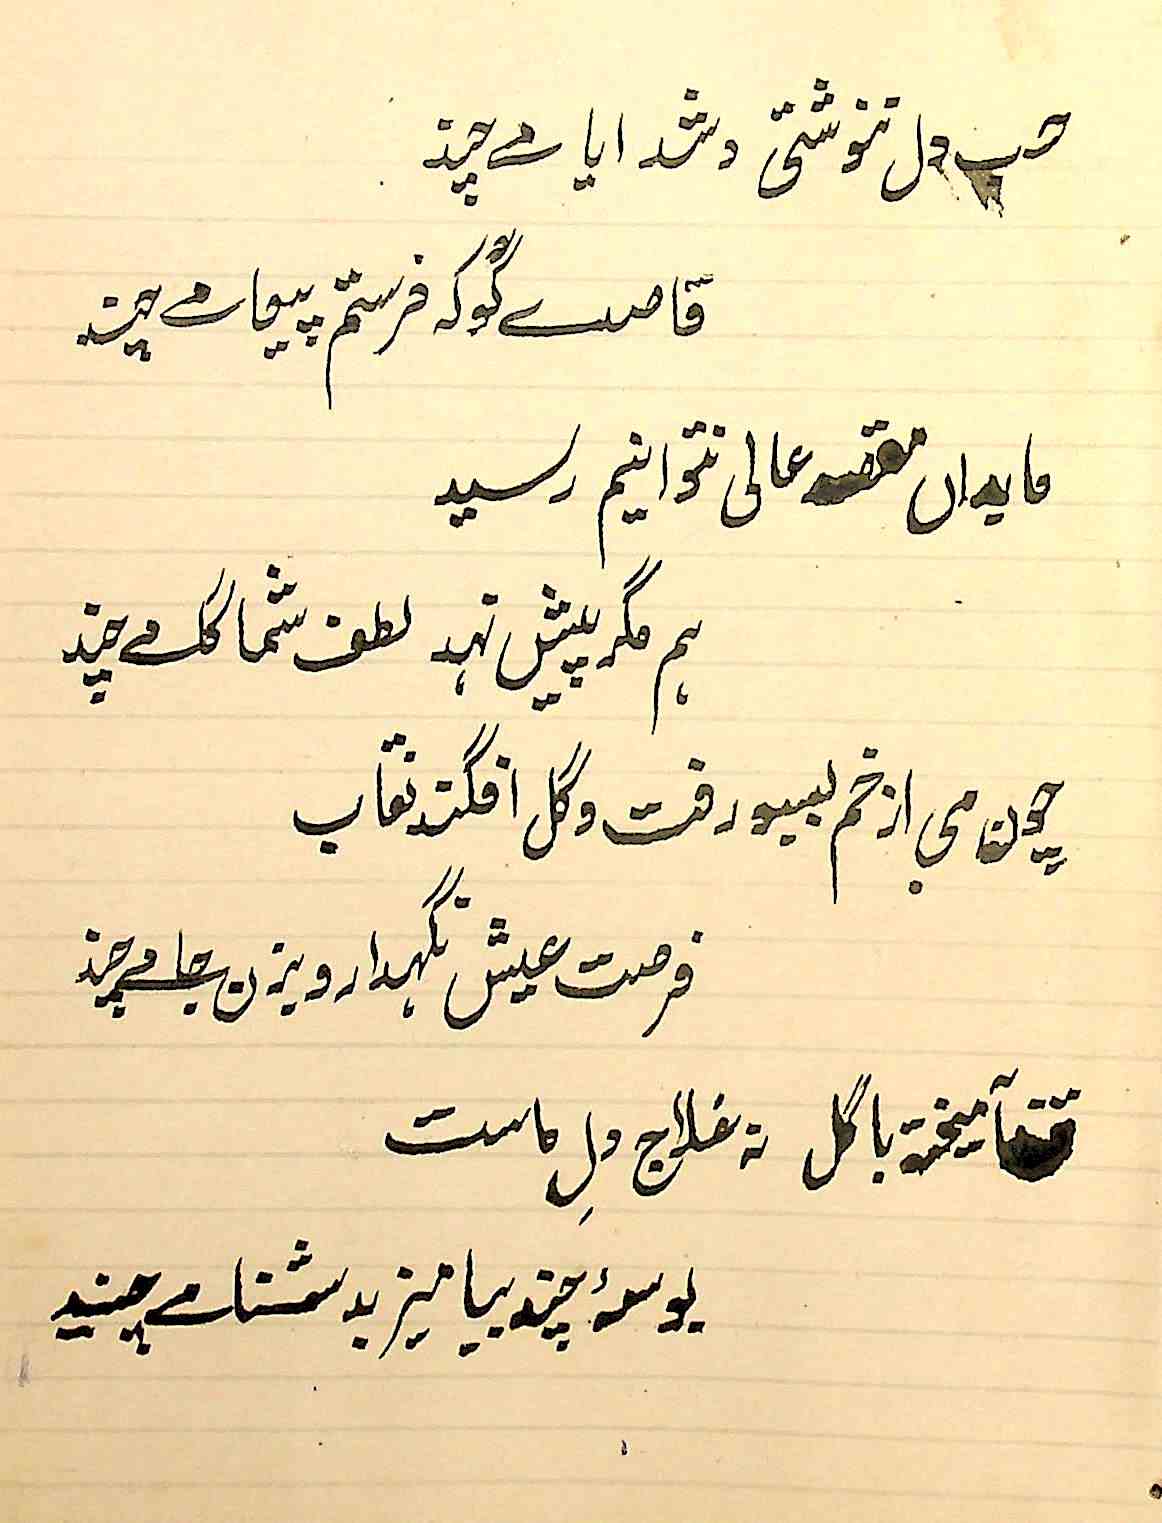 حسب دل ننوشتی و شد ایامے چند
قاصدے گو کہ فرستم پیغامے چند
ما بداں مقصد عالی نتوانیم رسید
ہم مگر پیش نہد لطف شما گامے چند
چون می از خم بسبو رفت و گل افگند نقاب
فرصت عیش نگہدار و بزن جامے چند
قند آمیختہ با گل نہ علاج دلِ ماست
بوسۂ چند بیامیز بدشنامے چند